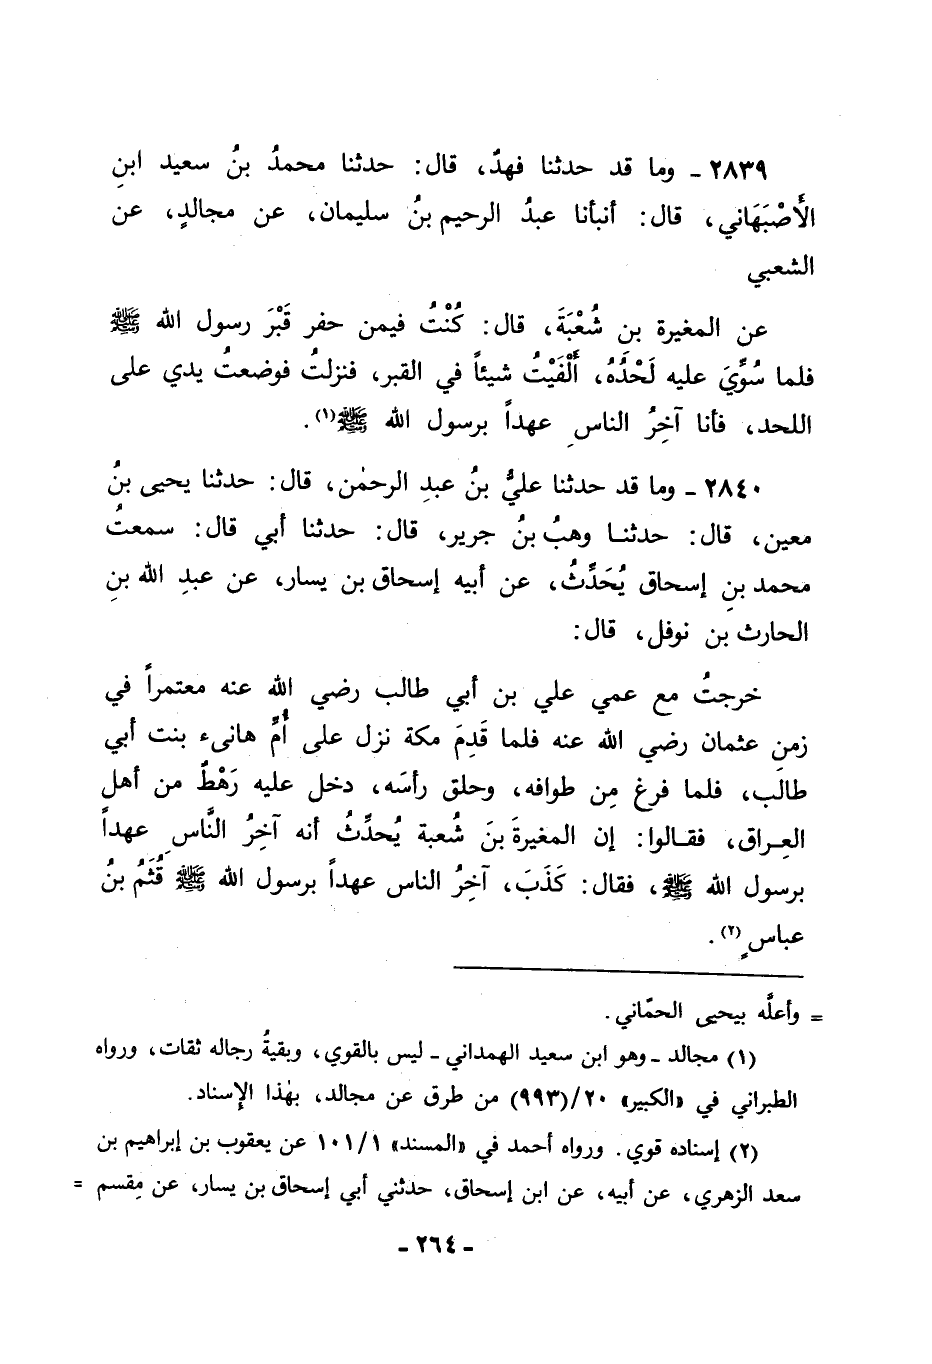 ٢٨٣٩ ـ وما قد حدثنا فهدٌ، قال: حدثنا محمدُ بنُ سعيد ابنِ
الأَصْبَهَاني، قال: أنبأنا عبدُ الرحيم بنُ سليمان، عن مجالدٍ، عن
الشعبي
عن المغيرة بن شُعْبَةَ، قال: كُنْتُ فيمن حفر قَبْرَ رسول الله ﷺ
فلما سُوِّيَ عليه لَحْدُهُ، أَلْقَيْتُ شيئاً في القبر، فنزلتُ فوضعتُ يدي على
اللحد، فأنا آخِرُ الناسِ عهداً برسول الله ﷺ(١).
٢٨٤٠ ـ وما قد حدثنا عليُّ بنُ عبدِ الرحمٰن، قال: حدثنا يحيى بنُ
معين، قال: حدثنـا وهبُ بنُ جرير، قال: حدثنا أبي قال: سمعتُ
محمد بنِ إسحاق يُحَدِّثُ، عن أبيه إسحاق بن يسار، عن عبدِ الله بنِ
الحارث بن نوفل، قال:
خرجتُ مع عمي علي بن أبي طالب رضي الله عنه معتمراً في
زمنِ عثمان رضي الله عنه فلما قَدِمَ مكة نزل على أُمِّ هانىء بنت أبي
طالب، فلما فرغ مِن طوافه، وحلق رأسَه، دخل عليه رَهْطٌ من أهل
العِـراق، فقـالوا: إن المغيرةَ بنَ شُعبة يُحدِّثُ أنه آخِرُ النَّاسِ عهداً
برسول الله ﷺ، فقال: كَذَبَ، آخِرُ الناس عهداً برسول الله ﷺ قُثَمُ بنُ
عباسٍ(٢).
= وأعلَّه بيحيى الحمّاني.
(١) مجالد ـ وهو ابن سعيد الهمداني ـ ليس بالقوي، وبقيةُ رجاله ثقات، ورواه
الطبراني في «الكبير» ٢٠/(٩٩٣) من طرق عن مجالد، بهٰذا الإسناد.
(٢) إسناده قوي. ورواه أحمد في «المسند» ١٠١/١ عن يعقوب بن إبراهيم بن
سعد الزهري، عن أبيه، عن ابن إسحاق، حدثني أبي إسحاق بن يسار، عن مِقسم =
ـ ٢٦٤ ـ